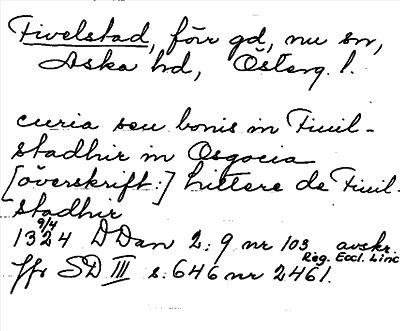 Fivelstad, förr gd, nu sn,
Aska hd, Österg. l.
curia seu bonis in Fiuil-
stadhir in Osgocia
[överskrift:] littere de Fiuil-
stadhir
9/4
1324 DDan 2: 9 nr 103 avskr.
Reg. Eccl. Linc
jfr SD III s. 646 nr 2461.